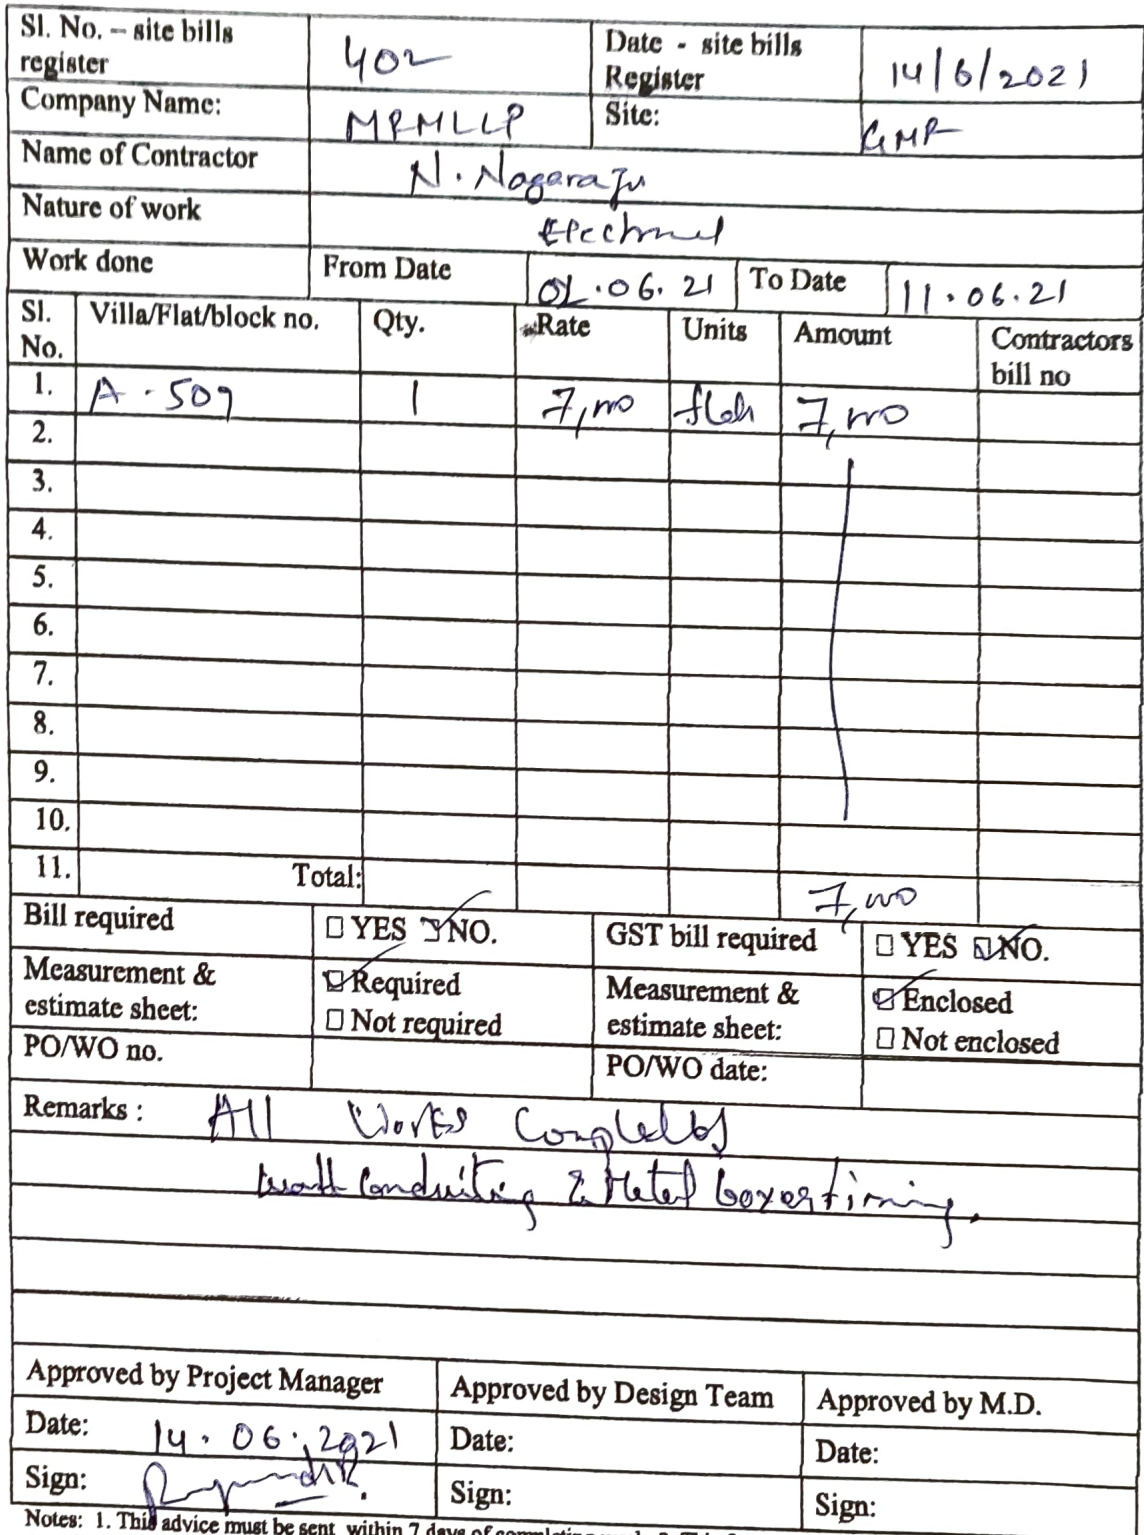 Sl. No. – site bills register 402 Date - site bills Register 14/6/2021
Company Name: MRMLLP Site: GMR
Name of Contractor N. Nagaraju
Nature of work Electrical
Work done From Date 01.06.21 To Date 11.06.21
Sl. No. Villa/Flat/block no. Qty. Rate Units Amount Contractors bill no
1. A-509 1 7,000 7,000
2.
3.
4.
5.
6.
7.
8.
9.
10.
11. Total: 7,000
Bill required □ YES ☑ NO. GST bill required □ YES ☑ NO.
Measurement & estimate sheet: ☑ Required Measurement & estimate sheet: ☑ Enclosed
□ Not required □ Not enclosed
PO/WO no. PO/WO date:
Remarks : All Works Completed
wall Conduiting & Metal boxes fixing.
Approved by Project Manager Approved by Design Team Approved by M.D.
Date: 14.06.2021 Date: Date:
Sign: Sign: Sign:
Notes: 1. This advice must be sent within 7 days of